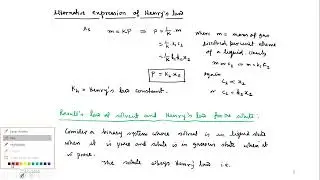 Alternative expression of Henry's law
As m = KP ⇒ P = 1/K m where m = mass of gas
dissolved per unit volume
of a liquid.
= 1/K k₁ c₂ m ∝ c₂ ⇒ m = k₁ c₂
= 1/K k₁ k₂ x₂ again
c₂ ∝ x₂
P = Kₕ x₂ or c₂ = k₂ x₂
Kₕ = Henry's law constant.
Raoult's law of solvent and Henry's law for the solute:
Consider a binary system where solvent is in liquid state
when it is pure and solute is in gaseous state when it
is pure.
The solute obeys Henry's law i.e.